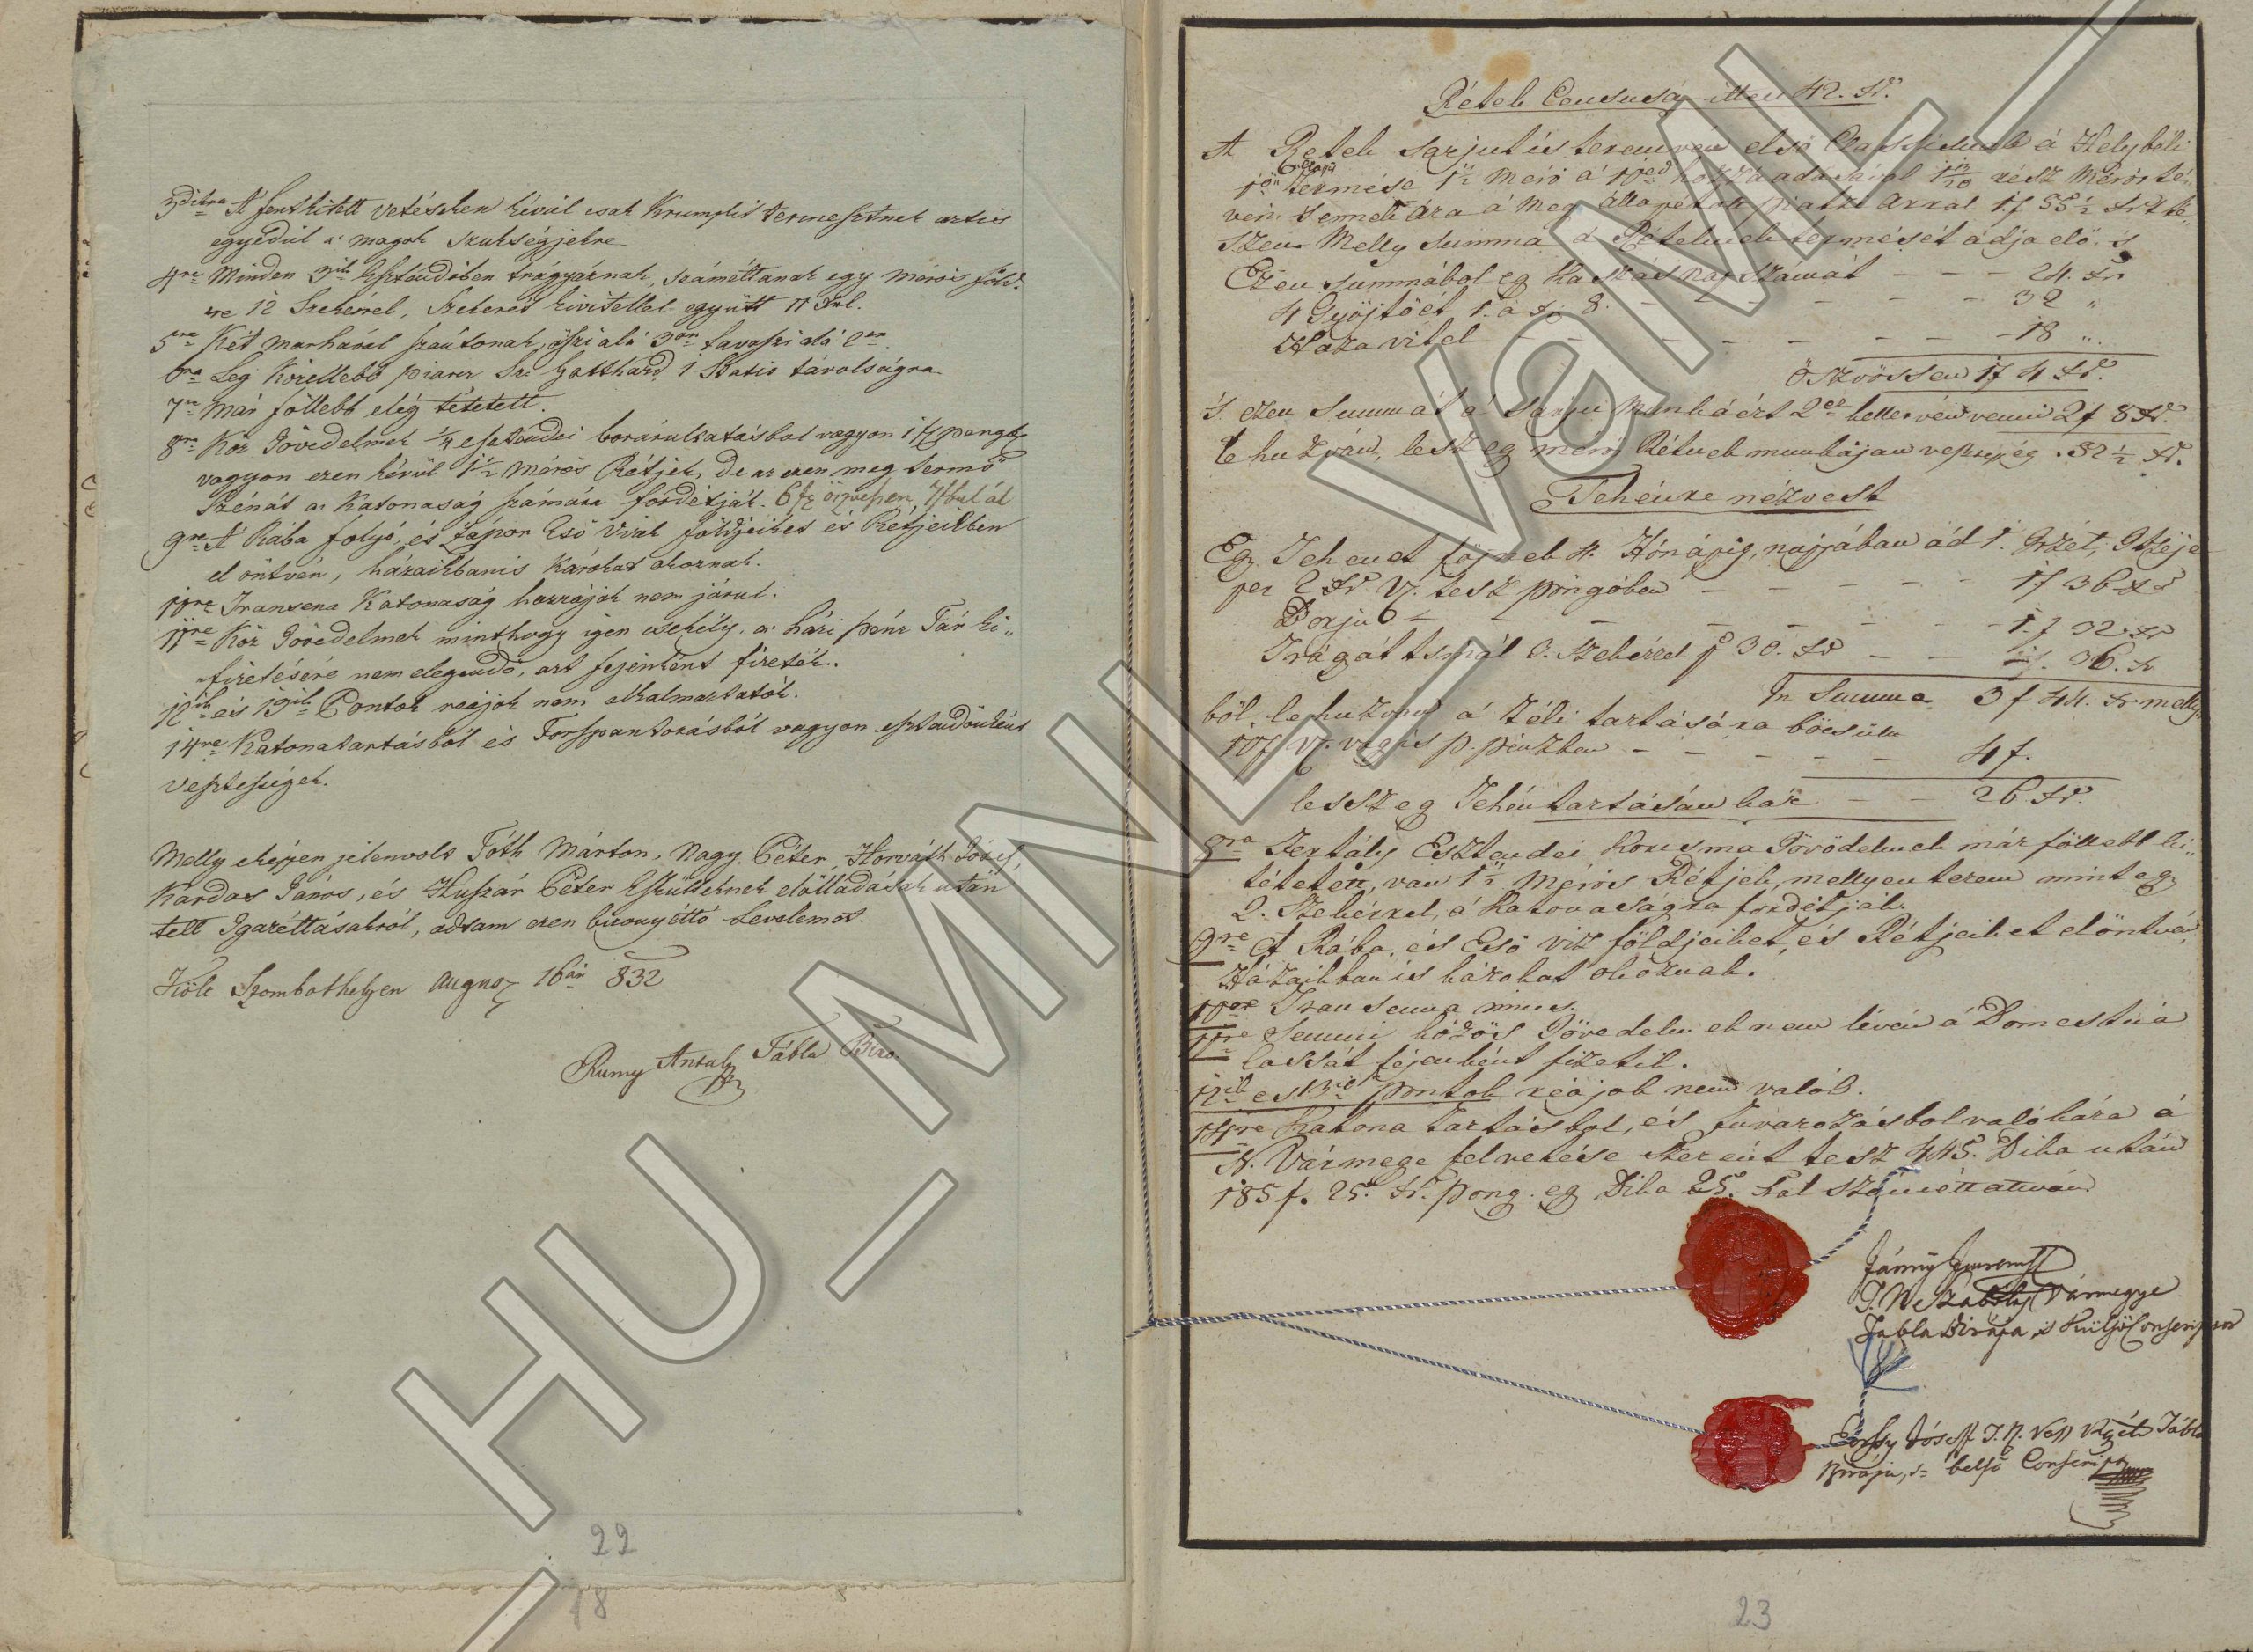 3ditra A fenthitett vetéseken kivül csak Krumplit termesztnek aztis
egyedül a magok szükségjekre
4re Minden 3ik Esztendőben trágyáznak, száméttanak egy mérős föld
re 12 Szekérrel, Szekerét kivitellel együtt 11 xrl.
5re Két marhával szántonak, öszi alá 3or tavaszi alá 2er.
6ra Leg Közellebb piacz Sz: Gotthard 1 Statio távolságra
7re Már föllebb elég tétetett.
8ra Köz Jövedelmek 1/4 esztendei borárultatásbol vagyon 17 pengő
vagyon ezen kivül 1 1/2 Mérős Rétjek, De az ezen meg termő
Szénát a Katonaság számára fordétják.
9re A' Rába folyó, és zápor Eső vizek földjeiket és Rétjeikben
el öntvén, házaikbanis Károkat okoznak.
10re Transena Katonaság hozzájok nem járul.
11re Köz Jövedelmek minthogy igen csekély, a' házi pénz Tár ki„
fizetésére nem elegendő, azt fejenként fizetik.
12ik és 13ik Pontok reájok nem alkalmaztatók.
14re Katonatartásból és Forspontozásból vagyon esztendőnként
vesztességek.
Melly eképpen jelenvolt Tóth Márton, Nagy Péter, Horváth Jósef,
Kardos János, és Huszár Péter Eskütteknek előlladásak után
tett Igazéttásakról, adtam ezen bizonyéttó Levelemet.
Költ Szombathelyen August 16án 832
Rumy Antal Tábla Biró
22
18
Rétek Censusa itten 42. xr.
A Rétek sarjutis teremvén első Classisuak a' Helybéli
termése 1 1/2 Mérő a' 10ed hozzá adásával resz Mérőt té„
vén ennek ára a' Meg állapétott piatzi árral 1f 55 1/2 xrt té„
szen. Melly summa a' Réteknek termését adja elő. s
Ezen summábol eg Kaszás nap számát – – – 24. xr
4 Gyöjtőét 1. a xr 8. – – – – – – 32 „
Haza vitel – – – – – – – 18 „
Öszvössen 1f 4 xr.
s ezen summát a' sarju munkáért 2er kelletvén venni 2f 8 xr.
le huzván, lesz eg mérő Rétnek munkáján vesztesség . 52 1/2 xr.
Tehénre nézvest
Eg Tehenet föjnek 4. Hónapig, napjában ád 1. Itzét, Itzéje
per 2 xr V. tesz pöngőben – – – – 1f 36 xr
Borju 6 – – – – – – – 1.f 32 xr
Trágát tsinál 2. szekérrel p 30. xr – – 36. xr
In Summa 3f 44. xr melly
böl, le huzván a' Téli tartására böcsülve
10f V. vagyis p. pénzben – – – – – 4f.
lessz eg Tehén tartásán kár – – 26 xr.
8ra Fertály Esztendei Korcsma Jövödelmek már föllebb ki„
tétetett, van 1 1/2 Mérős Rétjek, mellyen terem mint eg
2. Szekérrel, a' Katonaságra fordétják.
9re A' Rába, és Eső viz földjeiket, és Rétjeiket elöntvén,
Házaikban is károkat okoznak.
10re Transenna nincs.
11re Semmi közös Jövedelmek nem lévén a' Domestica
Cassát fejenként fizetik.
12ik es 13ik pontok reájok nem valók.
14re Katona Tartásbol, és Fuvarozásbol való kára a'
N. Vármege felvetése szerént tesz 445. Dika után
185 f. 25 xr. pong. eg Dika 25. xral száméttatván
T. N. Szabolcs Vármegye
Tabla Birája és Külső Conscriptor
Jósef T. N. Vass Vgyék Tábla
Birája, s belső Conscriptor
23
HU_MNL_VaML_I